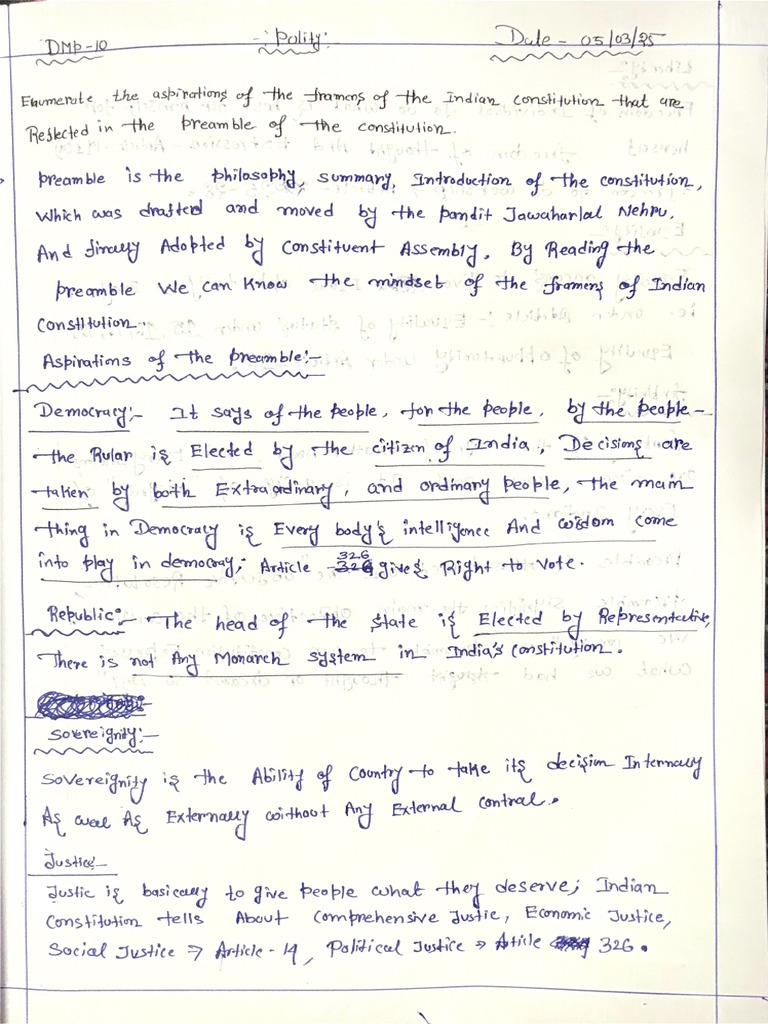 DMP-10
-: Polity:-
Date - 05/03/25
Enumerate the aspirations of the framers of the Indian constitution that are
Reflected in the preamble of the constitution.
preamble is the philosophy, summary, Introduction of the constitution,
Which was drafted and moved by the pandit Jawaharlal Nehru,
And finally Adopted by Constituent Assembly, By Reading the
preamble We can know the mindset of the framers of Indian
Constitution.
Aspirations of the preamble:-
Democracy:- It says of the people, for the people, by the people -
the Rular is Elected by the citizen of India, Decisions are
taken by both Extraordinary, and ordinary people, the main
thing in Democracy is Every body's intelligence And wisdom come
into play in democray; Article 326 gives Right to vote.
Republic:- The head of the state is Elected by Representative,
There is not Any Monarch system in India's constitution.
Sovereignity:-
Sovereignity is the Ability of Country to take its decision Internally
As well As Externally without Any External contral.
Justice:-
Justic is basically to give people what they deserve; Indian
Constitution tells About Comprehensive Justic, Economic Justice,
Social Justice => Article - 14, Political Justice => Article 326.